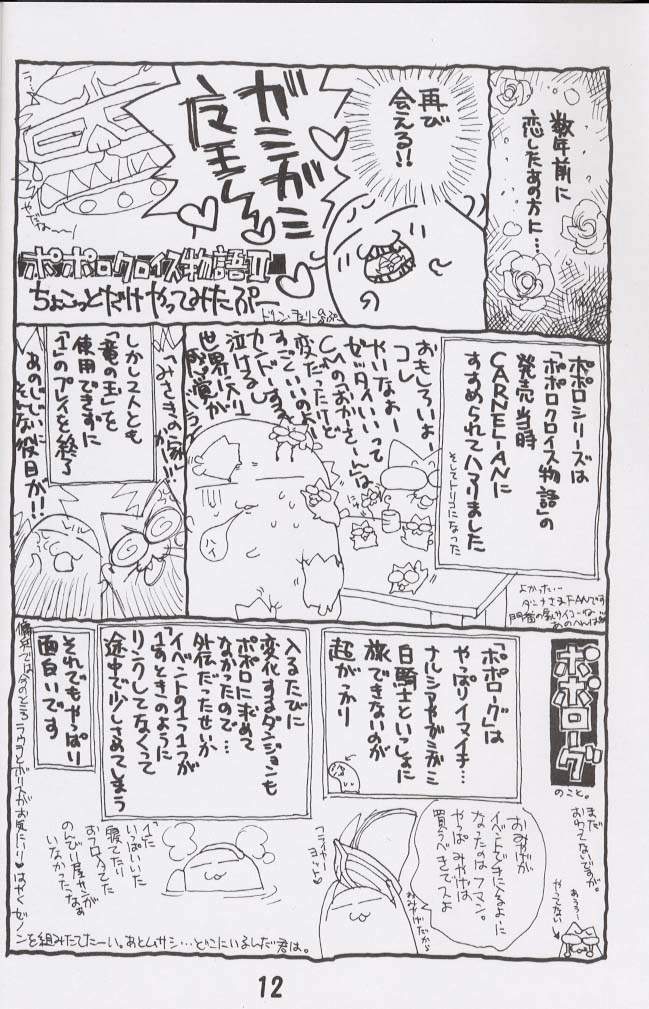 数年前に
恋したあの方に…
再び
会える!!
ガミガミ
魔王〜
ポポロクロイス物語II
ちょこっとだけやってみたぷー
ポポロシリーズは
「ポポロクロイス物語」の
発売当時
CARNELIANに
すすめられてハマりました
そしてトリコになった
おもしろいよぉー
コレ
やいなよぉー
ゼッタイいいって
CMの「おかーさーん」は
変だったけど
すごくいいのよぉ
カンドーするぞ
泣けるし
世界に入り
ハイ
「みさきの家」
しかし2人とも
「竜の玉」を
使用できずに
「1」のプレイを終了
あのじじいに
そんな役目が!!
ポポローグ
のこと。
まだ
おわってないですが。
やってない
「ポポローグ」は
やっぱりイマイチ…
ナルシャやガミガミ
白騎士といっしょに
旅できないのが
超がっかり
入るたびに
変化するダンジョンも
ポポロに求めて
なかったので…
外伝だったせいか
イベントの1つ1つが
「1」のときのように
リンクしてなくって
途中で少しさめてしまう
それでもやっぱり
面白いです
おみやげが
イベントで手に入るように
なったのはフマン。
やっぱみやげは
買うべきでスよ
おみやげだから
「1」に
いっぱいいた
寝てたり
おフロ入ってた
のんびり屋サンが
いなかったなぁ
はやくゼノンを組みたてたーい。あとムサシ…どこにいるんだ君は。
12